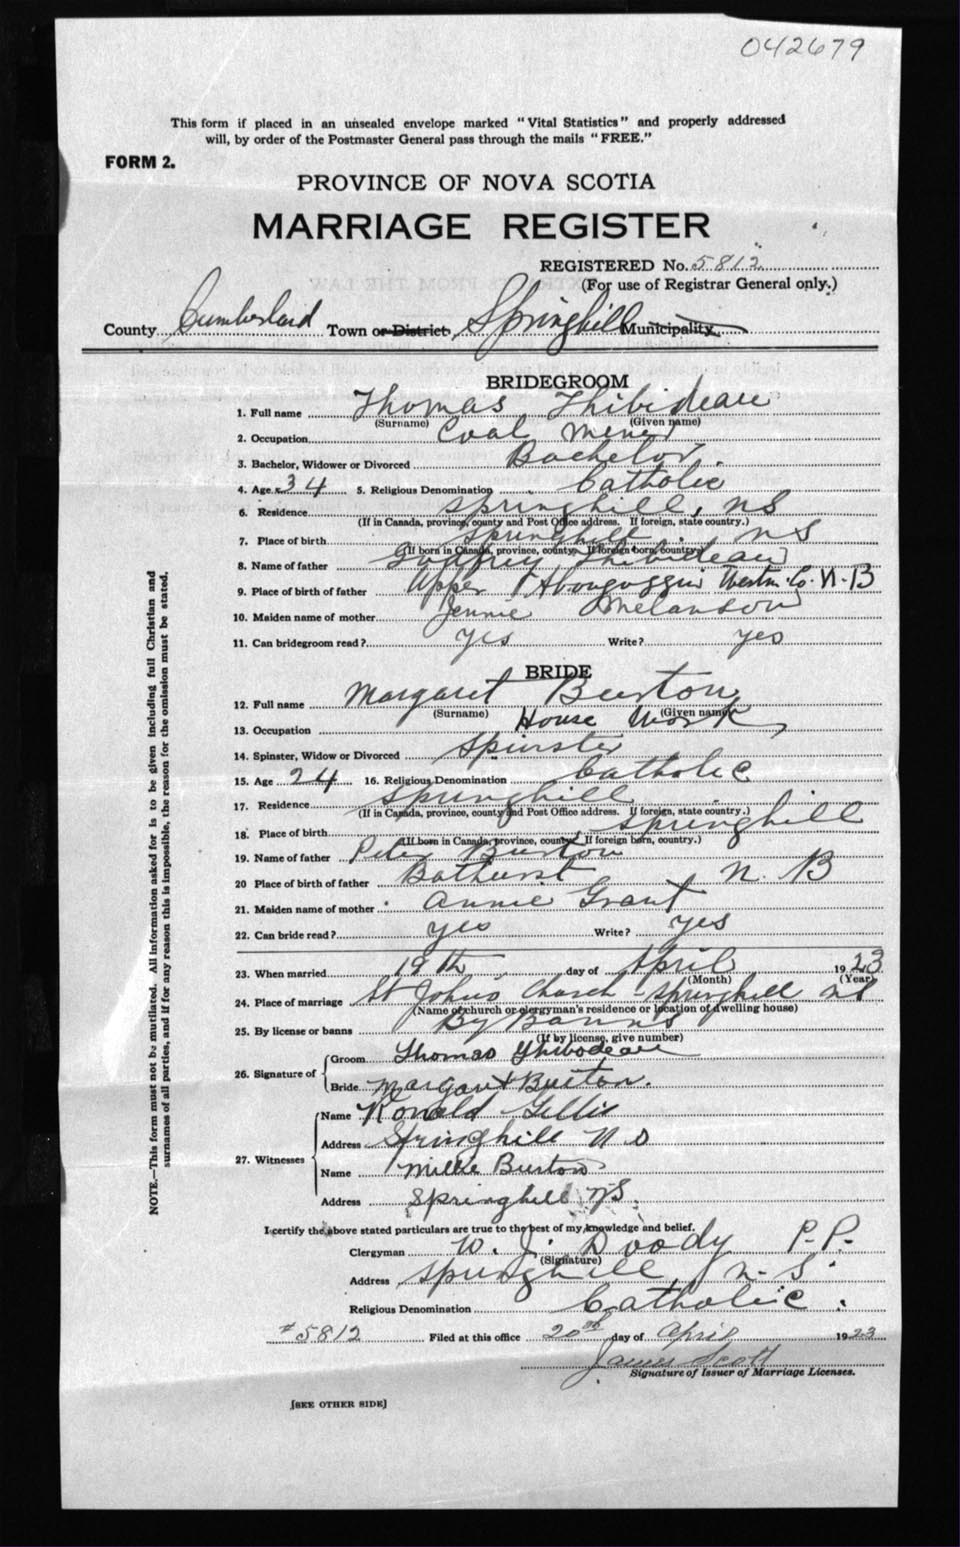 042679
This form if placed in an unsealed envelope marked "Vital Statistics" and properly addressed
will, by order of the Postmaster General pass through the mails "FREE."
FORM 2.
PROVINCE OF NOVA SCOTIA
MARRIAGE REGISTER
REGISTERED No. 5812
(For use of Registrar General only.)
County Cumberland Town or District, Springhill Municipality
BRIDEGROOM
1. Full name Thomas Thibideau
(Surname) (Given name)
2. Occupation Coal miner
3. Bachelor, Widower or Divorced Bachelor.
4. Age 34 5. Religious Denomination Catholic
6. Residence Springhill, NS
(If in Canada, province, county and Post Office address. If foreign, state country.)
7. Place of birth Springhill. NS
(If born in Canada, province, county. If foreign born, country.)
8. Name of father Godfrey Thibideau
9. Place of birth of father Upper Westm. Co. N-B
10. Maiden name of mother Jennie Melanson
11. Can bridegroom read? yes Write? yes
BRIDE
12. Full name Margaret Burton
(Surname) (Given name)
13. Occupation House Work
14. Spinster, Widow or Divorced Spinster
15. Age 24 16. Religious Denomination Catholic
17. Residence Springhill
(If in Canada, province, county and Post Office address. If foreign, state country.)
18. Place of birth Springhill
(If born in Canada, province, county. If foreign born, country.)
19. Name of father Peter Burton
20 Place of birth of father Bathurst N. B
21. Maiden name of mother Annie Grant
22. Can bride read? yes Write? yes
23. When married 19th day of April 1923
(Month) (Year)
24. Place of marriage St Johns Church - Springhill NS
(Name of church or clergyman's residence or location of dwelling house)
25. By license or banns By Banns
(If by license, give number)
26. Signature of Groom Thomas Thibodeau
Bride Margaret Burton.
27. Witnesses Name Ronald Gillis
Address Springhill N S
Name Milke Burton
Address Springhill NS.
I certify the above stated particulars are true to the best of my knowledge and belief.
Clergyman W. J. Doody P.P.
(Signature)
Address Springhill, N.S.
Religious Denomination Catholic.
#5812 Filed at this office 20th day of April 1923
James Scott
Signature of Issuer of Marriage Licenses.
[SEE OTHER SIDE]
NOTE.—This form must not be mutilated. All information asked for is to be given including full Christian and
surnames of all parties, and if for any reason this is impossible, the reason for the omission must be stated.